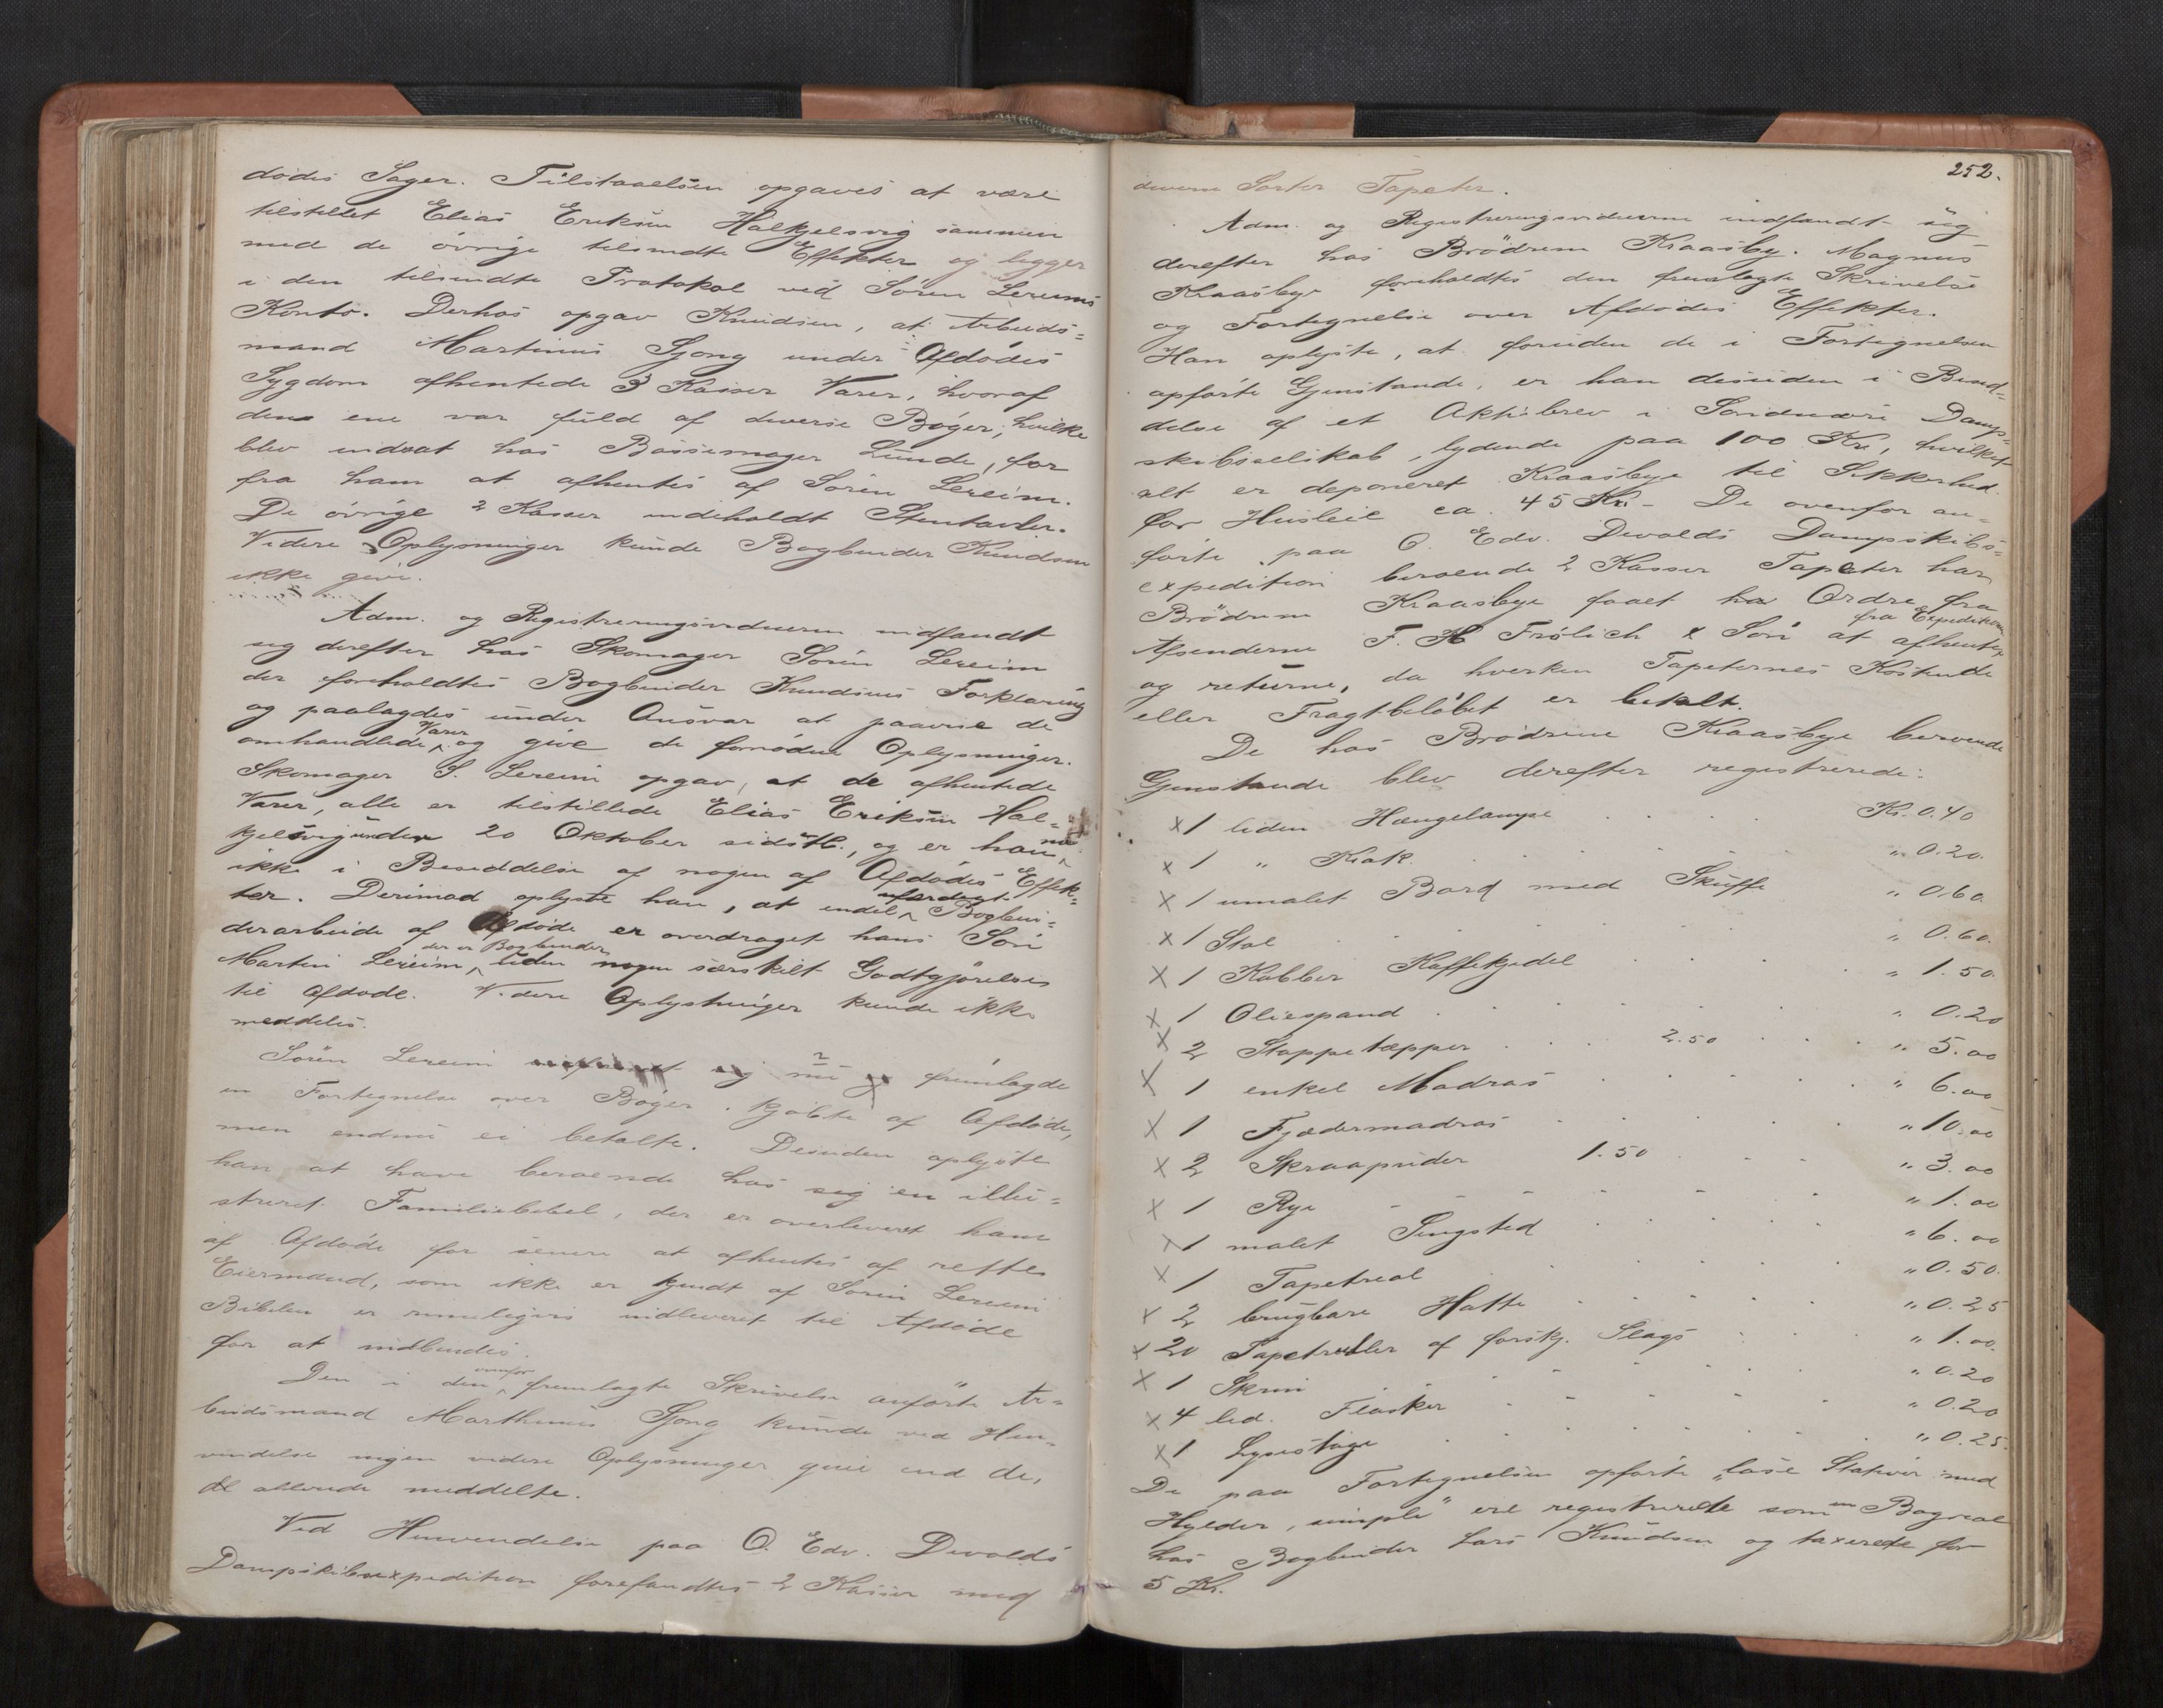 dødes Sager. Tilstaaelsen opgaves at være
tilstillet Elias Eriksen Halkjelsvig sammen
med de øvrige tilsendte Effekter og ligger
i den tilsendte Protokol ved Søren Lereims
Konto. Derhos opgav Knudsen, at Arbeids=
mand Martinus Sjong under Afdødes
Sygdom afhentede 3 Kasser Varer, hvoraf
den ene var fuld af diverse Bøger, hvilke
blev indsat hos Bøssemager Lunde, for
fra ham at afhentes af Søren Lereim.
De øvrige 2 Kasser indeholdt Stentavler.
Videre Oplysninger kunde Bogbinder Knudsen
ikke give.
Adm. og Registreringsvidnerne indfandt
sig derefter hos Skomager Søren Lereim
der foreholdtes Bogbinder Knudsens Forklaring
og paalagdes under Ansvar at paavise de
omhandlede Varer og give de fornødne Oplysninger.
Skomager S. Lereim opgav, at de afhentede
Varer, alle er tilstillede Elias Eriksen Hal=
kjelsvig under 20 Oktober sidstl., og er han nu
ikke i Besiddelse af nogen af Afdødes Effek=
ter. Derimod oplyste han, at endel ufærdigt Bogbin=
derarbeide af Afdøde er overdraget hans Søn
Martin Lereim, der er Bogbinder, uden nogen særskilt Godtgjørelse
til Afdøde. Videre Oplysninger kunde ikke
meddeles.
Søren Lereim nu fremlagde
en Fortegnelse over Bøger kjøbte af Afdøde,
men endnu ei betalte. Desuden oplyste
han at have beroende hos sig en illu=
streret Familiebibel, der er overleveret ham
af Afdøde for senere at afhentes af rette
Eiermand, som ikke er kjendt af Søren Lereim
Bibelen er rimeligvis indleveret til Afdøde
for at indbindes.
Den i den ovenfor fremlagte Skrivelse anførte Ar=
beidsmand Marthinus Sjong kunde ved Hen=
vendelse ingen videre Oplysninger give end de,
allerede meddelte.
Ved Henvendelse paa O. Edv. Devolds
Dampskibsexpedition forefandtes 2 Kasser med
252.
diverse Sorter Tapeter.
Adm. og Registreringsvidnerne indfandt sig
derefter hos Brødrene Kraasbye. Magnus
Kraasbye foreholdtes den fremlagte Skrivelse
og Fortegnelse over Afdødes Effekter.
Han oplyste, at foruden de i Fortegnelsen
opførte Gjenstande, er han desuden i Besid=
delse af et Aktiebrev i Søndmøre Damp=
skibsselskab, lydende paa 100 Kr, hvilket
alt er deponeret Kraasbye til Sikkerhed
for Husleie ca. 45 Kr. De ovenfor an=
førte paa O. Edv. Devolds Dampskibs=
expedition beroende 2 Kasser Tapeter har
Brødrene Kraasbye faaet Ordre fra
Afsenderne F. H Frølich & Søn at afhente fra Expeditionen
og returne, da hverken Tapeternes Kostende
eller Fragtbeløbet er betalt.
De hos Brødrene Kraasbye beroende
Gjenstande blev derefter registrerede:
x 1 liden Hængelampe Kr. 0.40
x 1 " Krak " 0.20.
x 1 umalet Bord med Skuffe " 0.60
x 1 Stol " 0.60.
x 1 Kobber Kaffekjedel " 1.50.
x 1 Oliespand " 0.20
x 2 Stoppetæpper 2.50 " 5.00
x 1 enkel Madras " 6.00
x 1 Fjædermadras " 10.00
x 2 Skraapuder 1.50 " 3.00
x 1 Rye " 1.00
x 1 malet Sengsted " 6.00
x 1 Tapetreol " 0.50.
x 2 brugbare Hatte " 0.25
x 20 Tapetruller af forskj. Slags " 1.00.
x 1 Skrin " 0.20
x 4 led. Flasker " 0.20
x 1 Lysestage " 0.25.
De paa Fortegnelsen opførte "løse Stativer med
Hylder, simple" ere registrerede som en Bogreol
hos Bogbinder Lars Knudsen og taxerede for
5 Kr.